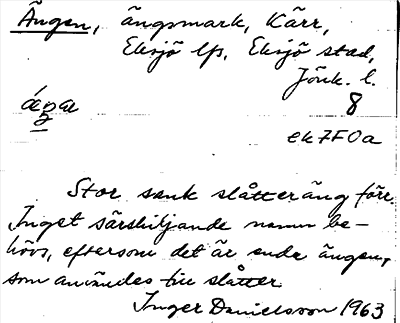 Ängen, ängsmark, Kärr,
Eksjö lfs, Eksjö stad,
Jönk. l.
8
ek7F0a
Stor sank slåtteräng förr.
Inget särskiljande namn be-
hövs, eftersom det är enda ängen,
som användes till slåtter
Inger Danielsson 1963